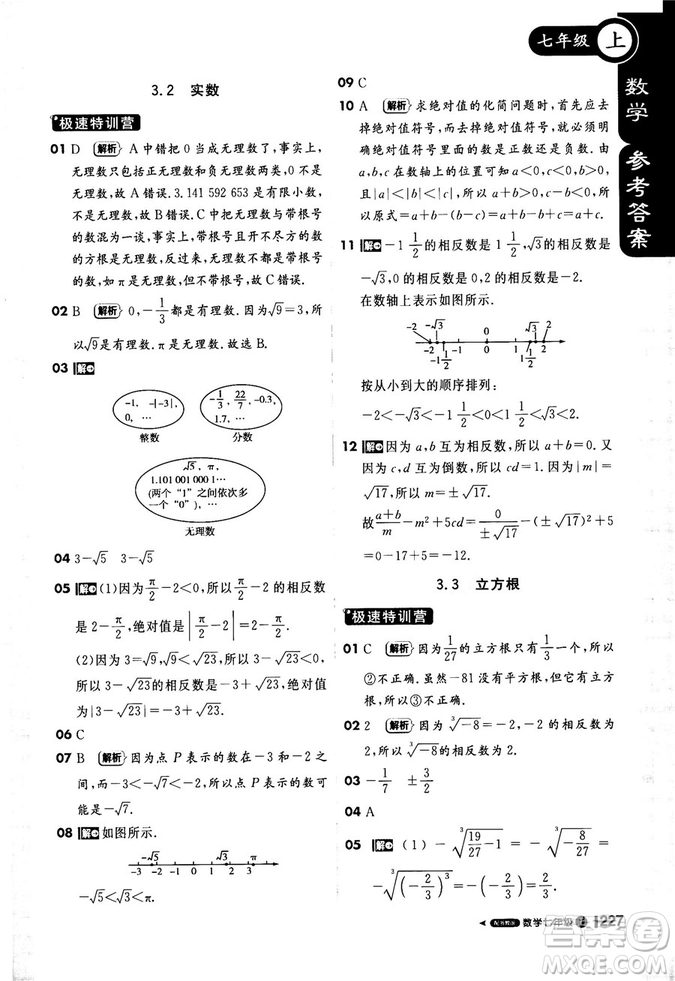 七年级 上
数学 参考答案
3.2 实数
极速特训营
01 D 解析 A中错把0当成无理数了,事实上,
无理数只包括正无理数和负无理数两类,0不是
无理数,故A错误.3.141 592 653是有限小数,
不是无理数,故B错误.C中把无理数与带根号
的数混为一谈,事实上,带根号且开不尽方的数
的方根是无理数,反过来,无理数可能带根号,
但不仅仅带根号,如π是无理数,但不带根号,故C错误.
02 B 解析 0,-1/3都是有理数.因为√9=3,所
以√9是有理数.π是无理数.故选B.
03 解
-1, -|-3|,
0, …
整数
-1/3, 22/7, -0.3,
1.7, …
分数
√5, π,
1.101 001 000 1…
(两个“1”之间依次多
一个“0”), …
无理数
04 3-√5 3-√5
05 解 (1)因为π/2-2<0,所以π/2-2的相反数
是2-π/2,绝对值是|π/2-2|=2-π/2.
(2)因为3=√9,√9<√23,所以3-√23<0,
所以3-√23的相反数是-3+√23,绝对值
为|3-√23|=-3+√23.
06 C
07 B 解析 因为点P表示的数在-3和-2之
间,还靠近-3,所以点P表示的数可能是
-√7.
08 解 如图所示.
-√5 √3 π
-3 -2 -1 0 1 2 3
-√5<√3<π
09 C
10 A 解析 求绝对值的化简问题时,首先应去
掉绝对值符号,而去掉绝对值符号时,首先应
判断绝对值符号里面的数是正数还是负数.由
a,b,c在数轴上的位置可知a<0,c<0,b>0,
且|a|<|b|<|c|,所以a+b>0,c-b<0.所
以原式=a+b-(b-c)=a+b-b+c=a+c.
11 解 -1 1/2的相反数是1 1/2,√3的相反数是
-√3,0的相反数是0,2的相反数是-2.
在数轴上表示如图所示.
-√3 √3
-2 -1 0 1 2
-1 1/2 1 1/2
按从小到大的顺序排列:
-2<-√3<-1 1/2<0<1 1/2<√3<2.
12 解 因为a,b互为相反数,所以a+b=0.又
因为c,d互为倒数,所以cd=1.因为|m|=
√17,所以m=±√17.
故(a+b)/m-m²+5cd=0/±√17-(±√17)²+5=
0-17+5=-12.
3.3 立方根
极速特训营
01 C 解析 因为1/27的立方根只有一个,所以
②不正确.虽然-81没有平方根,但它有立方
根,所以③不正确.
02 2 解析 因为³√-8=-2,-2的相反数为
2,所以³√-8的相反数为2.
03 -1/7 ±3/2
04 A
05 解 (1)-³√(19/27-1)=-³√(-8/27)=
-³√(-2/3)³=-(-2/3)=2/3.
数学七年级 上 1227
答案圈
MXQE.COM